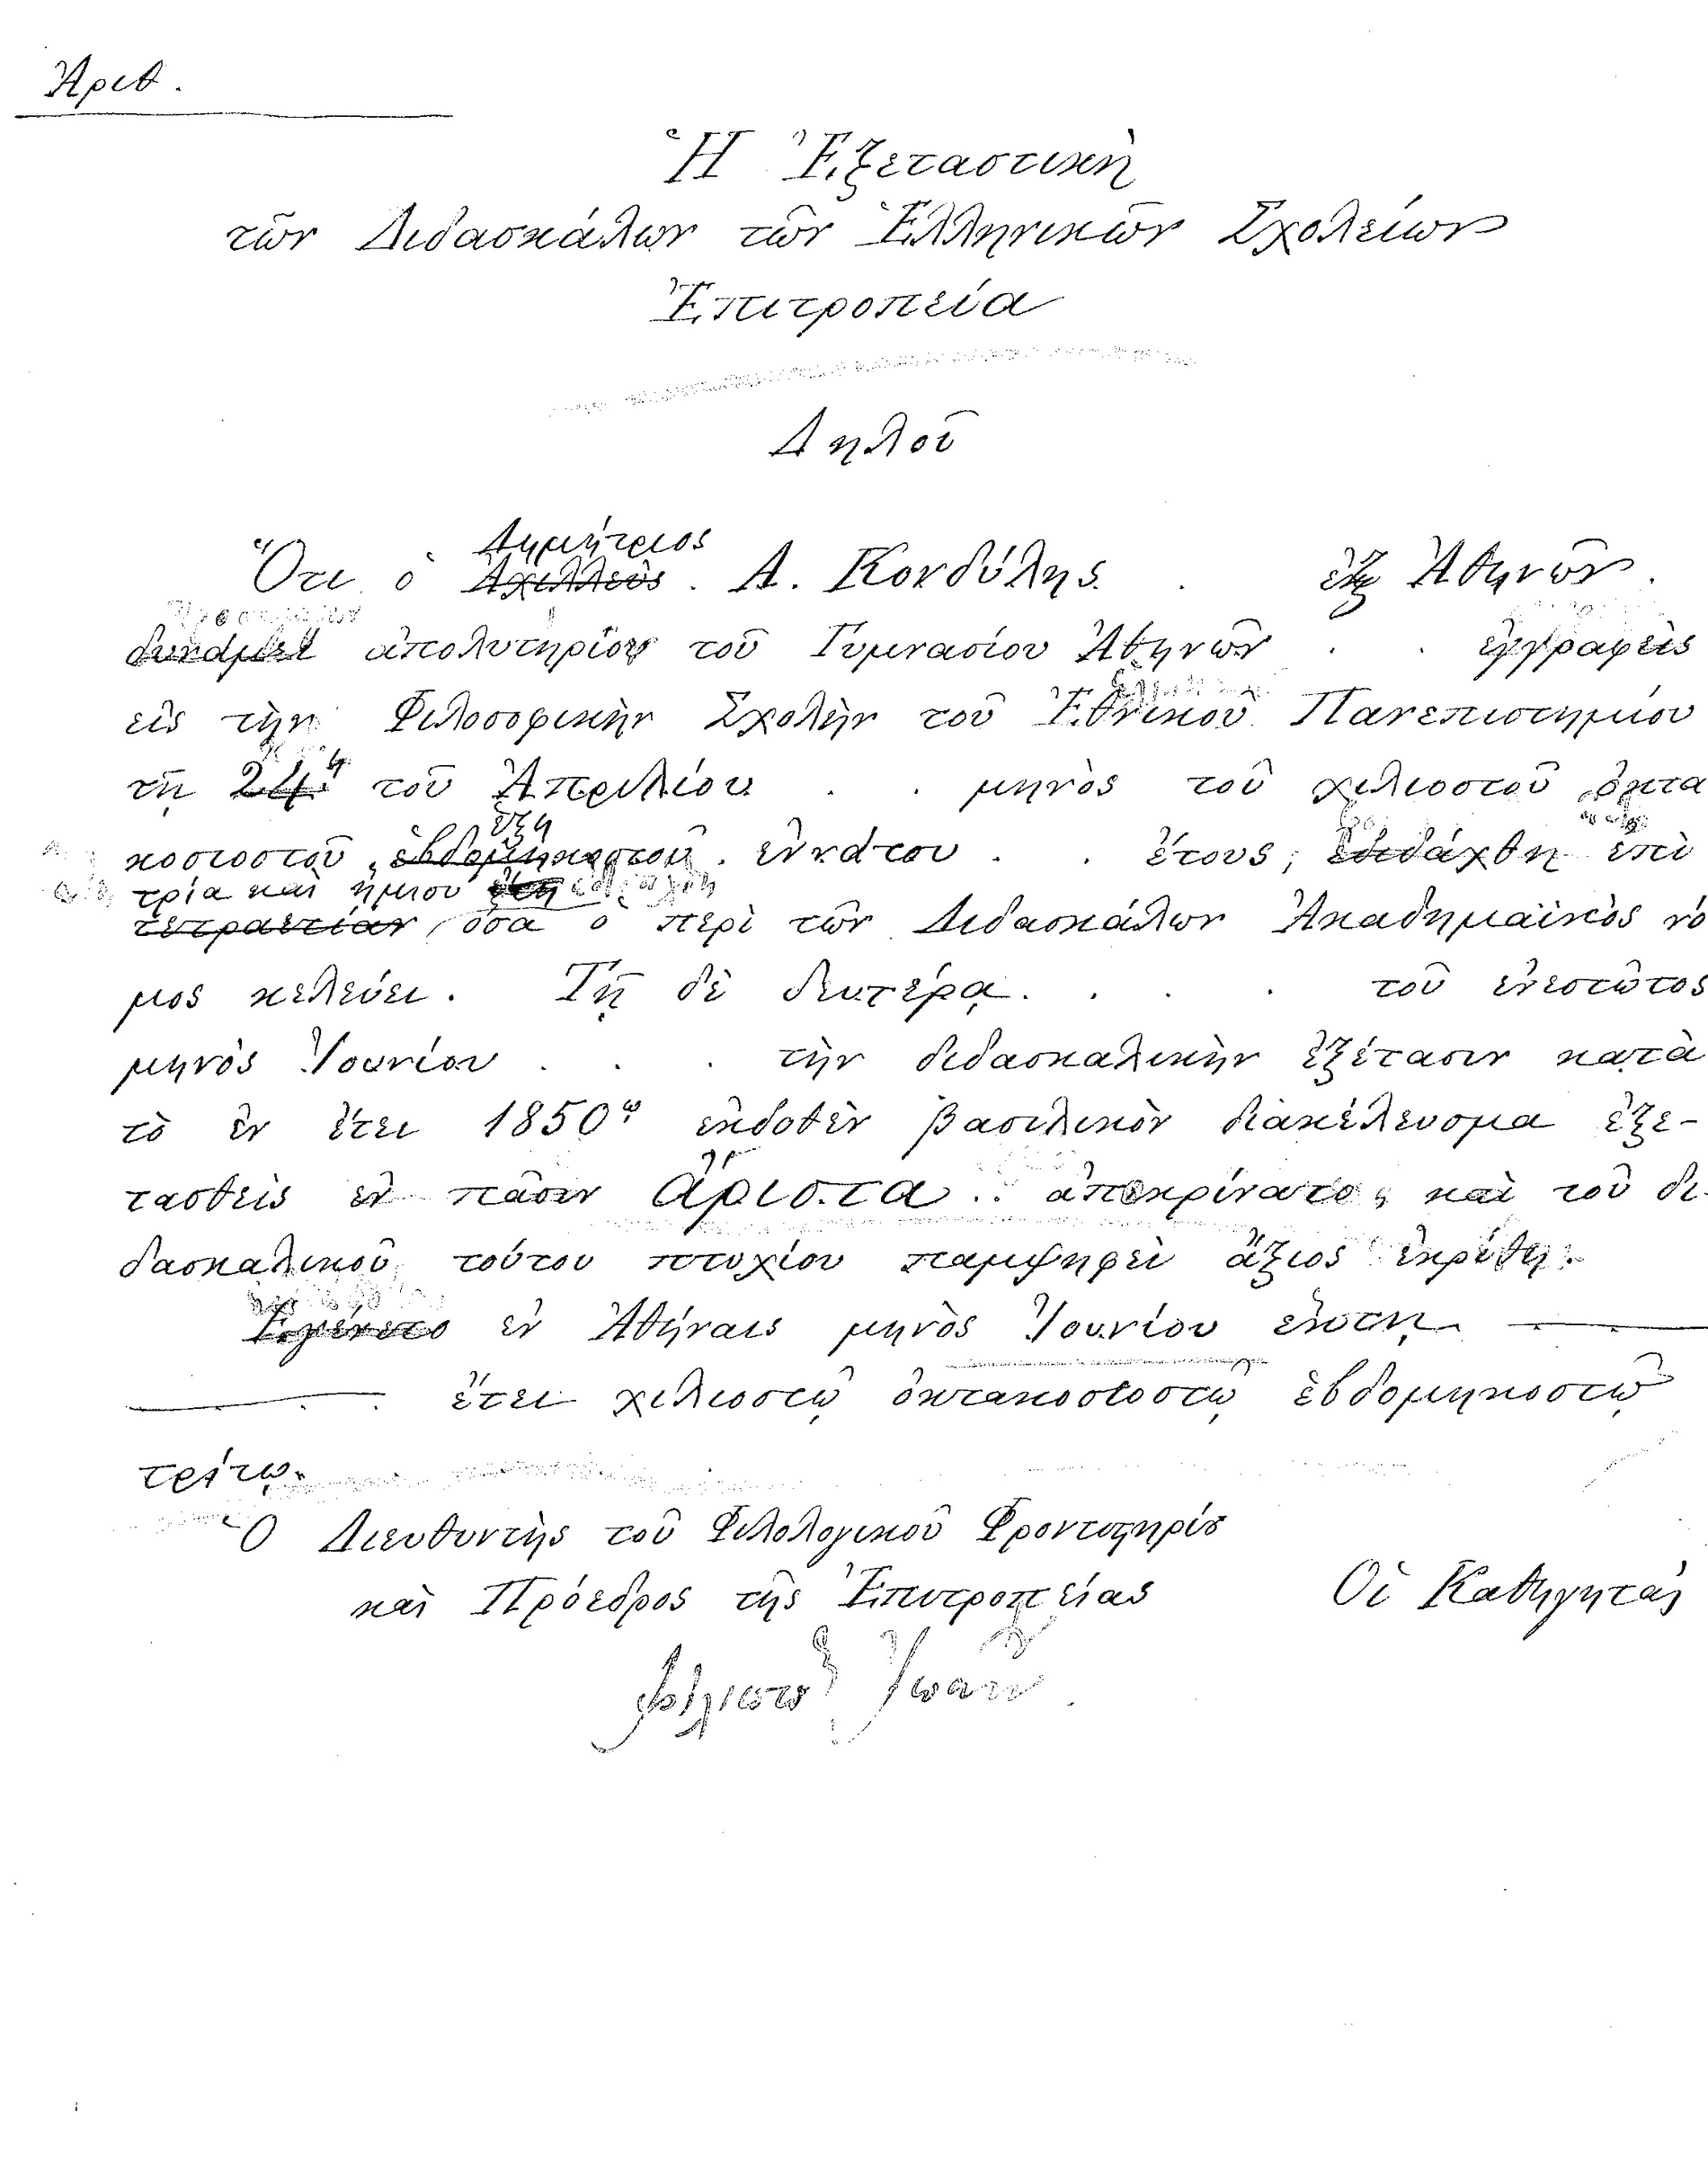 Ἀριθ.
Ἡ Ἐξεταστικὴ
τῶν Διδασκάλων τῶν Ἑλληνικῶν Σχολείων
Ἐπιτροπεία
Δηλοῖ
Δημήτριος
Ὅτι ὁ Ἀχιλλεὺς . Α. Κονδύλης . ἐξ Ἀθηνῶν.
δυνάμει ἀπολυτηρίου τοῦ Γυμνασίου Ἀθηνῶν . . ἐγγραφεὶς
εἰς τὴν Φιλοσοφικὴν Σχολὴν τοῦ Ἐθνικοῦ Πανεπιστημίου
τῇ 24ῃ τοῦ Ἀπριλίου . . μηνὸς τοῦ χιλιοστοῦ ὀκτα
εξη
κοσιοστοῦ ἑβδομηκοστοῦ . ἐννάτου . . ἔτους, ἐδιδάχθη ἐπὶ
τρία καὶ ἥμισυ ἔτη
τετραετίαν ὅσα ὁ περὶ τῶν Διδασκάλων Ἀκαδημαϊκὸς νό
μος κελεύει. Τῇ δὲ δευτέρᾳ . . . τοῦ ἐνεστῶτος
μηνὸς Ἰουνίου . . . τὴν διδασκαλικὴν ἐξέτασιν κατὰ
τὸ ἐν ἔτει 1850ῳ ἐκδοθὲν βασιλικὸν διακέλευσμα ἐξε-
τασθεὶς ἐν πᾶσιν ἄριστα .. ἀπεκρίνατο, καὶ τοῦ δι-
δασκαλικοῦ τούτου πτυχίου παμψηφεὶ ἄξιος ἐκρίθη.
Ἐγένετο ἐν Ἀθήναις μηνὸς Ἰουνίου ἕκτῃ
ἔτει χιλιοστῷ ὀκτακοσιοστῷ ἑβδομηκοστῷ
τρίτῳ.
Ὁ Διευθυντὴς τοῦ Φιλολογικοῦ Φροντιστηρίου
καὶ Πρόεδρος τῆς Ἐπιτροπείας Οἱ Καθηγηταὶ